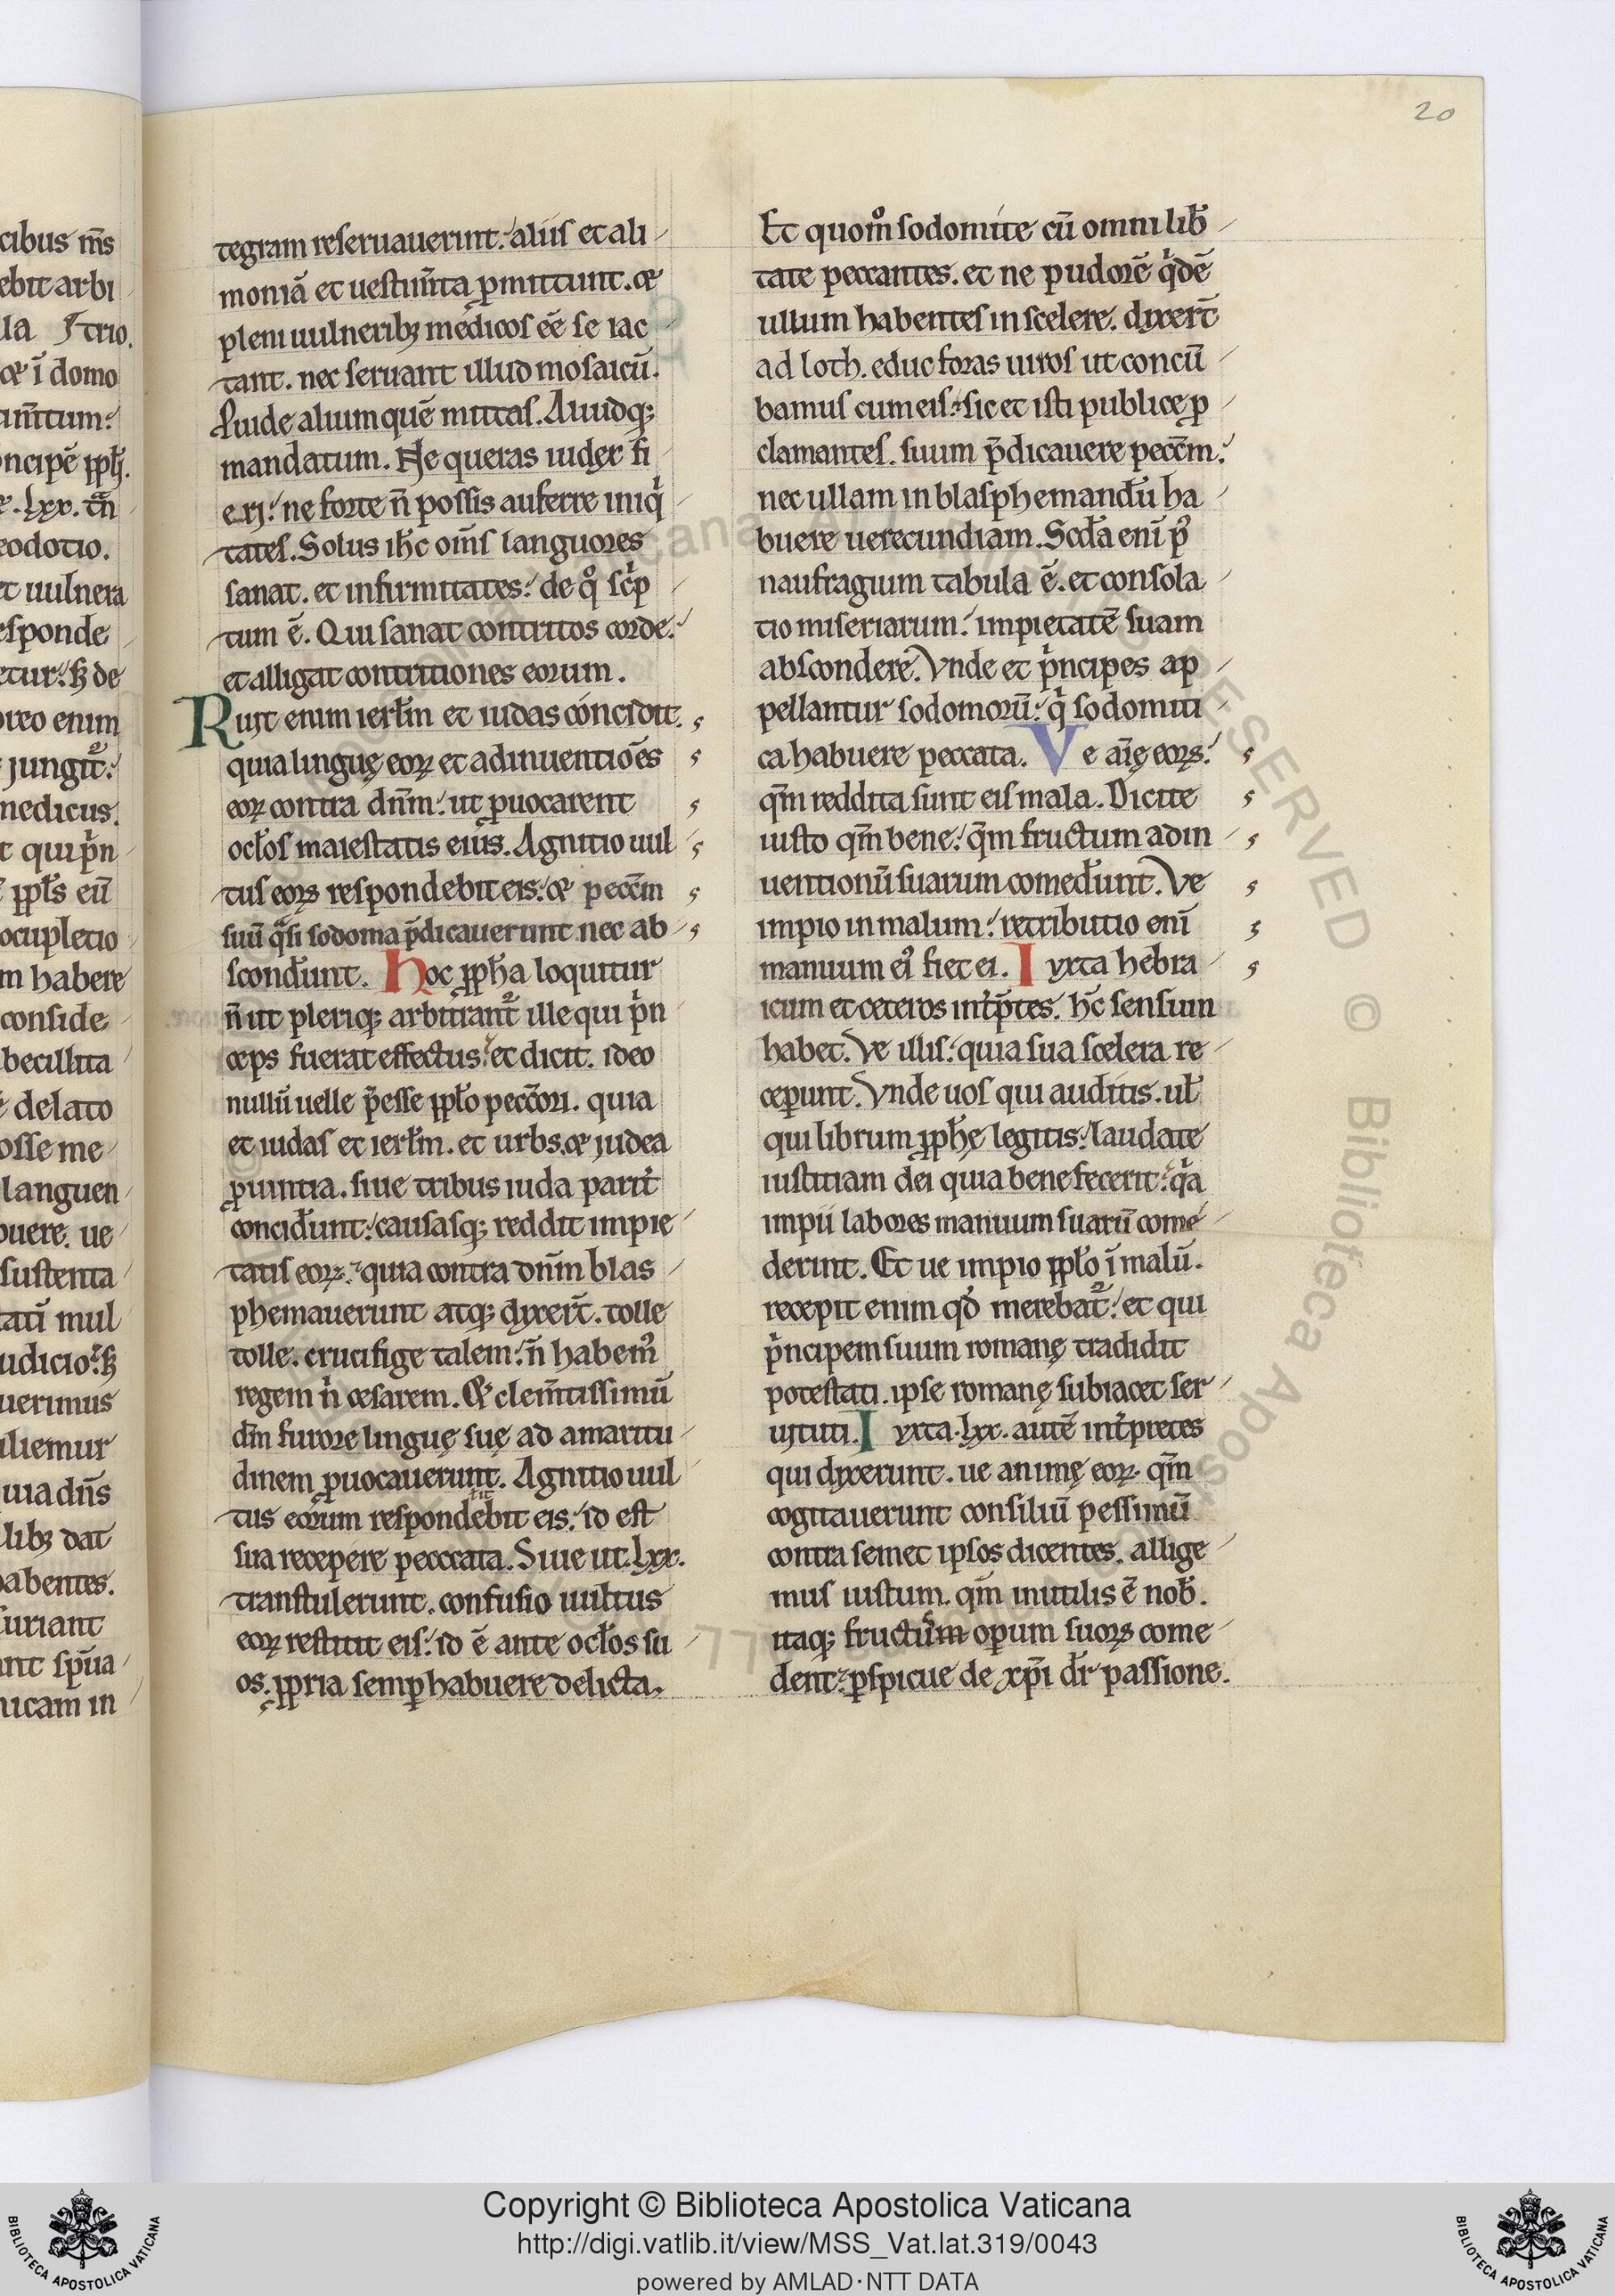 20
cibus m̄s
ebit arbi
lla
⁊ i domo
ncipē ppłi.
eodotio.
et uulnera
esponde
oreo enim
jungit᷑:
medicus.
t qui p̄n
ocupletio
m habere
conside
becillita
delato
osse me
languen
buere. ue
sustenta
tati mul
udicio:
uerimus
iliemur
uia dn̄s
libꝫ dat
habentes.
suriant
ant spūa
nicam in
tegram reseruauerint: aliis et ali
moniā et uestim̄ta ꝑmittunt. ⁊
pleni uulneribꝫ medicos ēe se iac
tant. nec seruant illud mosaicū.
Puide alium quē mittas. Aliudqꝫ
mandatum. Ne queras iudex fi
eri: ne forte n̄ possis auferre iniqⁱ
tates. Solus ih̄c om̄s languores
sanat. et infirmitates: de qͦ scⁱp
tum ē. Qui sanat contritos corde:
et alligat contritiones eorum.
Ruit enim ierłm et iudas concidit.
quia linguę eoꝝ et adinuentiōes
eoꝝ contra dn̄m: ut ꝓuocarent
ocłos maiestatis eius. Agnitio uul
tus eoꝝ respondebit eis: ⁊ pecc̄m
suū qᵃsi sodoma p̄dicauerunt nec ab
scondłunt. Hoc ꝓph̄a loquitur
n̄ ut pleriqꝫ arbitrant᷑ ille qui pⁱn
ceps fuerat effectus: et dicit. ideo
nullū uelle p̄esse ppło pecc̄ori. quia
et iudas et ierłm. et urbs. ⁊ judea
ꝓuintia. siue tribus iuda parit̉
concidłunt: causasqꝫ reddit impie
tatis eoꝝ: quia contra dn̄m blas
phemauerunt atqꝫ dixer̄t. tolle
tolle. crucifige talem: n̄ habem᷒
regem nⁱ cesarem. Et clem̄tissimū
dn̄m furore linguę suę ad amaritu
dinem ꝓuocauerunt. Agnitio uul
tus eorum respondebit eis: id est
sua recepere pecccata. Siue ut. lxx.
transtulerunt. confusio uultus
eoꝝ restitit eis: id ē ante ocłos su
os. ꝓpria semꝑ habuere delicta.
Et quom̊ sodomite cū omni lib̄
tate peccantes. et ne pudorē qⁱdē
ullum habentes in scelere. dixer̄t
ad loth. educ foras uiros ut concū
bamus cum eis: sic et isti publice ꝓ
clamantes. suum p̄dicauere pecc̄m:
nec ullam in blasphemandłi ha
buere uerecundiam. Scd̄a eni p᷒
naufragium tabula ē. et consola
tio miseriarum: impietatē suam
abscondere. Vnde et pⁱncipes ap
pellantur sodomorū: qⁱ sodomiti
ca habuere peccata. Ve aīę eoꝝ:
qm̄ reddita sunt eis mala. Dicite
iusto qm̄ bene: qm̄ fructum adin
uentionū suarum comedłunt. Ve
impio in malum: retributio enī
manuum ei᷒ fiet ei. Iuxta hebra
icum et ceteros int̉p̄tes. h̄c sensum
habet. Ve illis: quia sua scelera re
ceꝑunt. Vnde uos qui auditis. uł
qui librum ꝓph̄ę legitis: laudate
iustitiam dei quia bene fecerit: qᵃ
impii labores manuum suarū come
derint. Et ue impio ppło ī malū.
recepit enim qd̓ merebat᷑: et qui
pⁱncipem suum romanę tradidit
potestati. ipse romanę subiacet ser
uituti. Iuxta. lxx. autē int̉pretes
qui dixerunt. ue animę eoꝝ. qm̄
cogitauerunt consiliū pessimū
contra semet ipsos dicentes. allige
mus iustum. qm̄ inutilis ē nob̄.
itaqꝫ fructum oꝑum suoꝝ come
dent: ꝑspicue de xp̄i dr̄ passione.
Copyright © Biblioteca Apostolica Vaticana
http://digi.vatlib.it/view/MSS_Vat.lat.319/0043
powered by AMLAD·NTT DATA
BIBLIOTECA APOSTOLICA VATICANA
BIBLIOTECA APOSTOLICA VATICANA